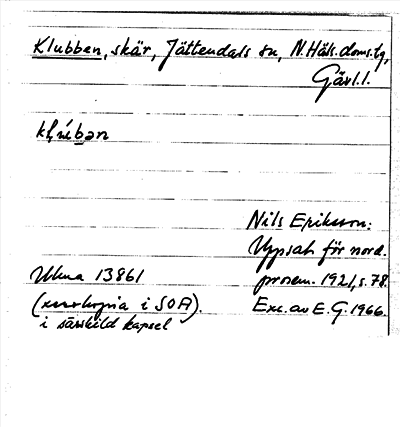 Klubben, skär, Jättendals sn, N. Häls. doms.g,
Gävl.l.
Nils Eriksson:
Uppsats för nord.
Ulma 13861 prosem. 1921, s. 78.
(xerokopia i SOA). Exc. av E. G. 1966.
i särskild kapsel